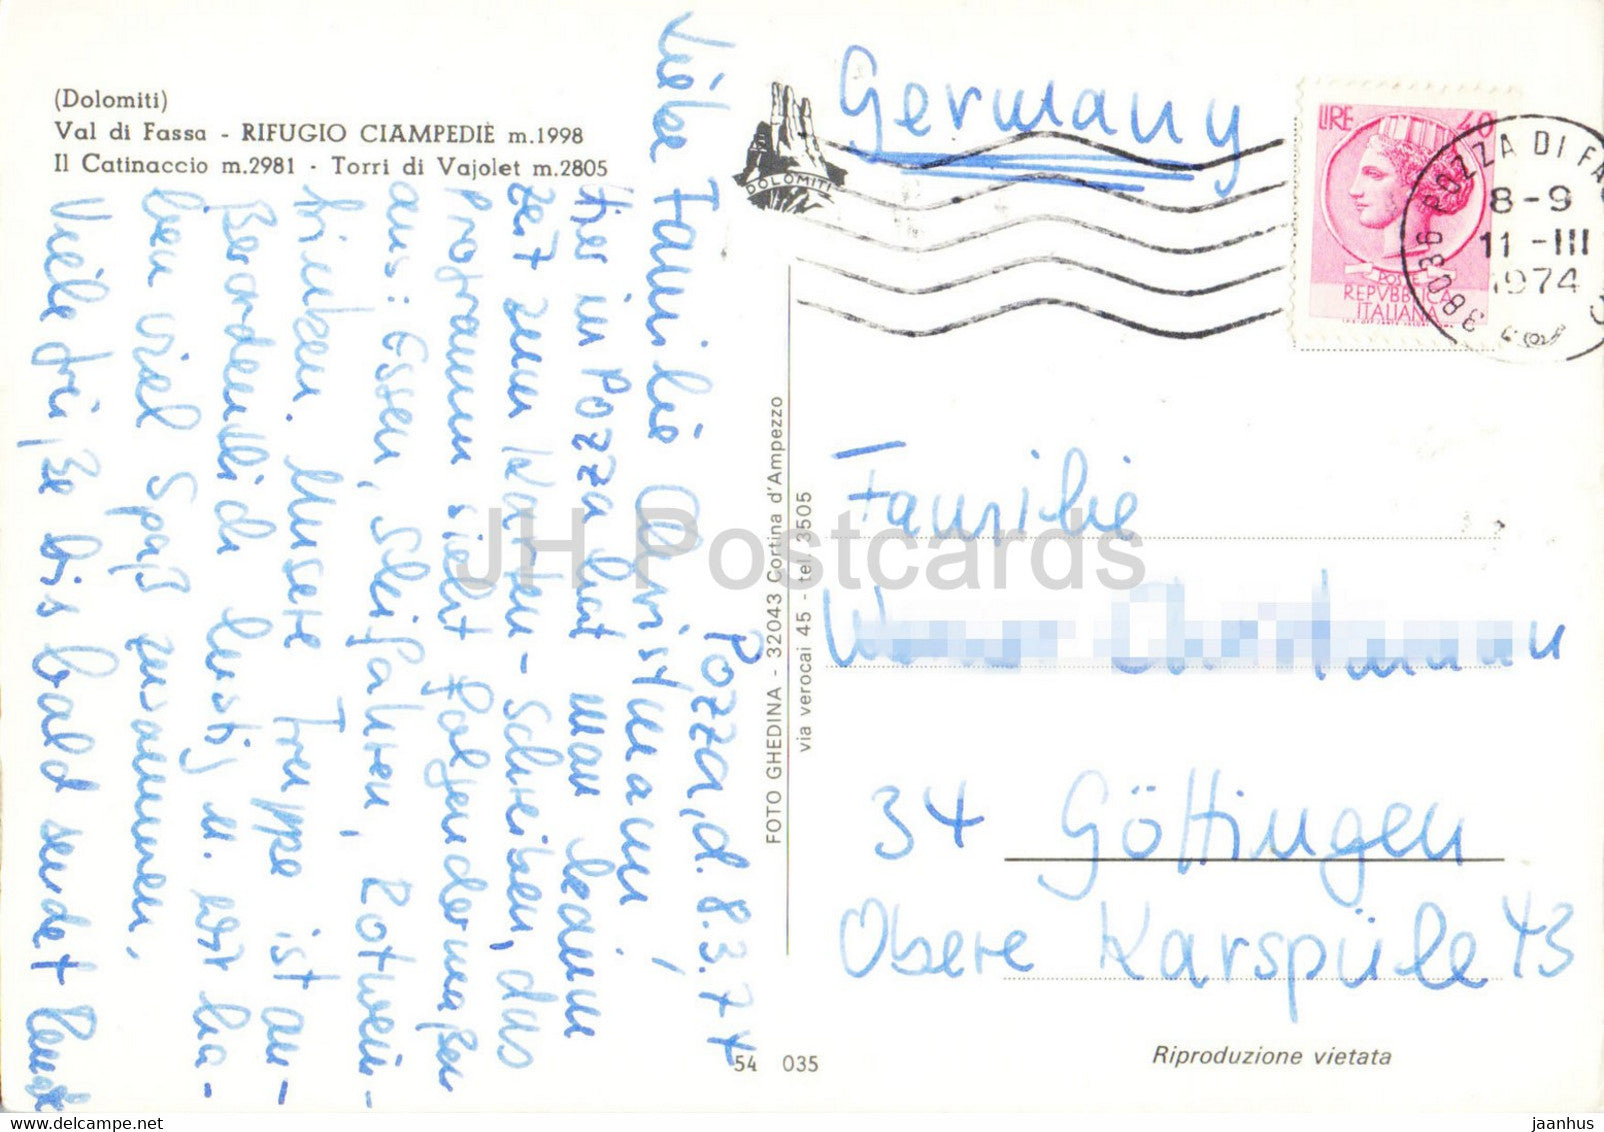 (Dolomiti)
Val di Fassa - RIFUGIO CIAMPEDIÈ m.1998
Il Catinaccio m.2981 - Torri di Vajolet m.2805
Pozza, d. 8.3.74
Liebe Familie Christmann!
Hier in Pozza hat man kaum
Zeit zum Karten-Schreiben, das
Programm sieht folgendermaßen
aus: Essen, Schifahren, Rotwein-
trinken. Unsere Truppe ist au-
ßerordentlich lustig u. wir ha-
ben viel Spaß zusammen.
Viele Grüße bis bald sendet
FOTO GHEDINA - 32043 Cortina d'Ampezzo
via verocai 45 - tel. 3505
DOLOMITI
Germany
LIRE 40
POSTE
REPVBBLICA
ITALIANA
38036 POZZA DI FA
8-9
11-III
1974
Familie
34 Göttingen
Obere Karspüle 43
54 035
Riproduzione vietata
JH Postcards
www.delcampe.net
jaanhus